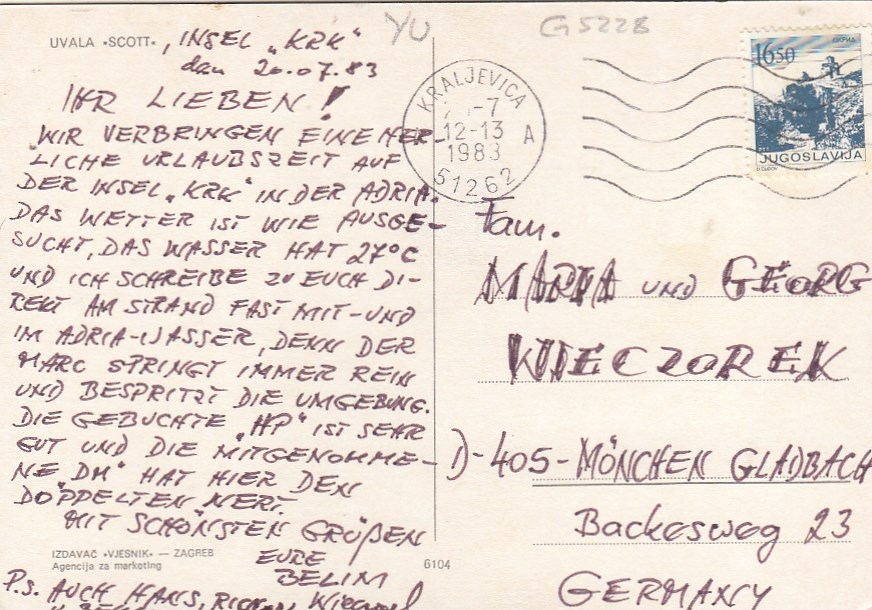 UVALA »SCOTT«, INSEL „KRK“
dan 20.07.83
IHR LIEBEN!
WIR VERBRINGEN EINE HER-
LICHE URLAUBSZEIT AUF
DER INSEL „KRK“ IN DER ADRIA.
DAS WETTER IST WIE AUSGE-
SUCHT, DAS WASSER HAT 27°C
UND ICH SCHREIBE ZU EUCH DI-
REKT AM STRAND FAST MIT-UND
IM ADRIA-WASSER, DENN DER
MARC SPRINGT IMMER REIN
UND BESPRITZT DIE UMGEBUNG.
DIE GEBUCHTE „HP“ IST SEHR
GUT UND DIE MITGENOMME-
NE DM“ HAT HIER DEN
DOPPELTEN WERT.
MIT SCHÖNSTEN GRÜßEN
EURE
BELIM
IZDAVAČ »VJESNIK« — ZAGREB
Agencija za marketing
6104
P.S. AUCH HANS,
YU
G5228
KRALJEVICA
-7
12-13
A
1983
51262
16.50
JUGOSLAVIJA
Fam.
MARIA UND GEORG
WIECZOREK
D-405-MÖNCHEN GLADBACH
Backesweg 23
GERMANY